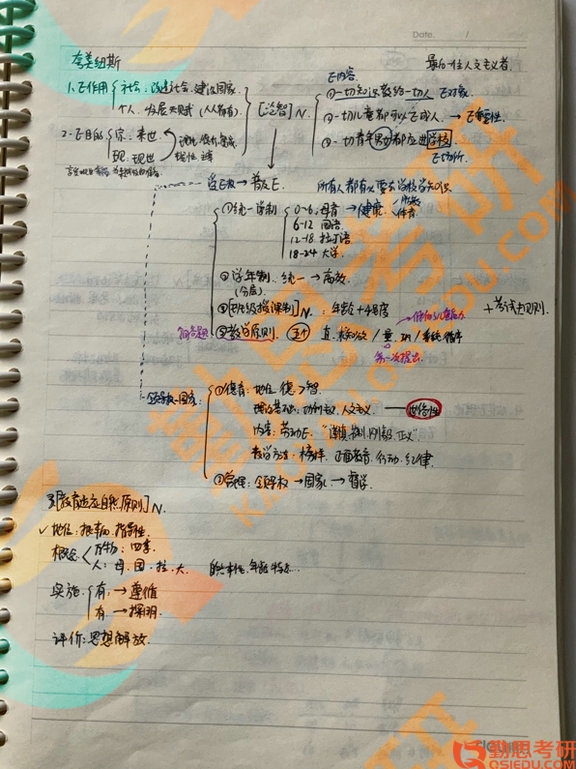 Date. /
夸美纽斯 最后一位人文主义者.
1. E作用 社会: 改造社会、建设国家.
个人: 发展天赋 (人人都有).
[泛智]N.
E内容.
①一切知识教给一切人 E对象.
②一切儿童都可以E成人. → E重要性.
③一切青年男女都应进学校
E场所.
2. E目的 宗: 来世
现: 现世
受E权 → 普及E. 所有人都有必要去学校学知识
①统一学制 0-6. 母育 → 健康. 体育.
6-12 国语
12-18 拉丁语
18-24 大学.
②学年制. 统一 → 高效.
(分层)
③[班级授课制]N. : 年龄 + 程度 + 考试规则.
简答题 ④教学原则. 五个 直. / 量. 巩 / 系统循序
第一次提出.
领导权-国家:
①德育: 地位 德>智.
理论基础: 功利主义, 人文主义.
内容: 劳动E. "谨慎. 节制. 刚毅. 正义"
教学方法: 榜样. 正面教育. 行动. 纪律.
②管理: 领导权 → 国家 → 督学.
3[教育适应自然原则]N.
✓地位: 根本的. 指导性.
概念 万物: 四季.
人: 母. 国. 拉. 大. 年龄特点...
实施 有: → 遵循
有 → 探明.
评价: 思想解放.
勤思考研
KAOYAN.QSIEDU.COM
勤思考研
QSIEDU.COM